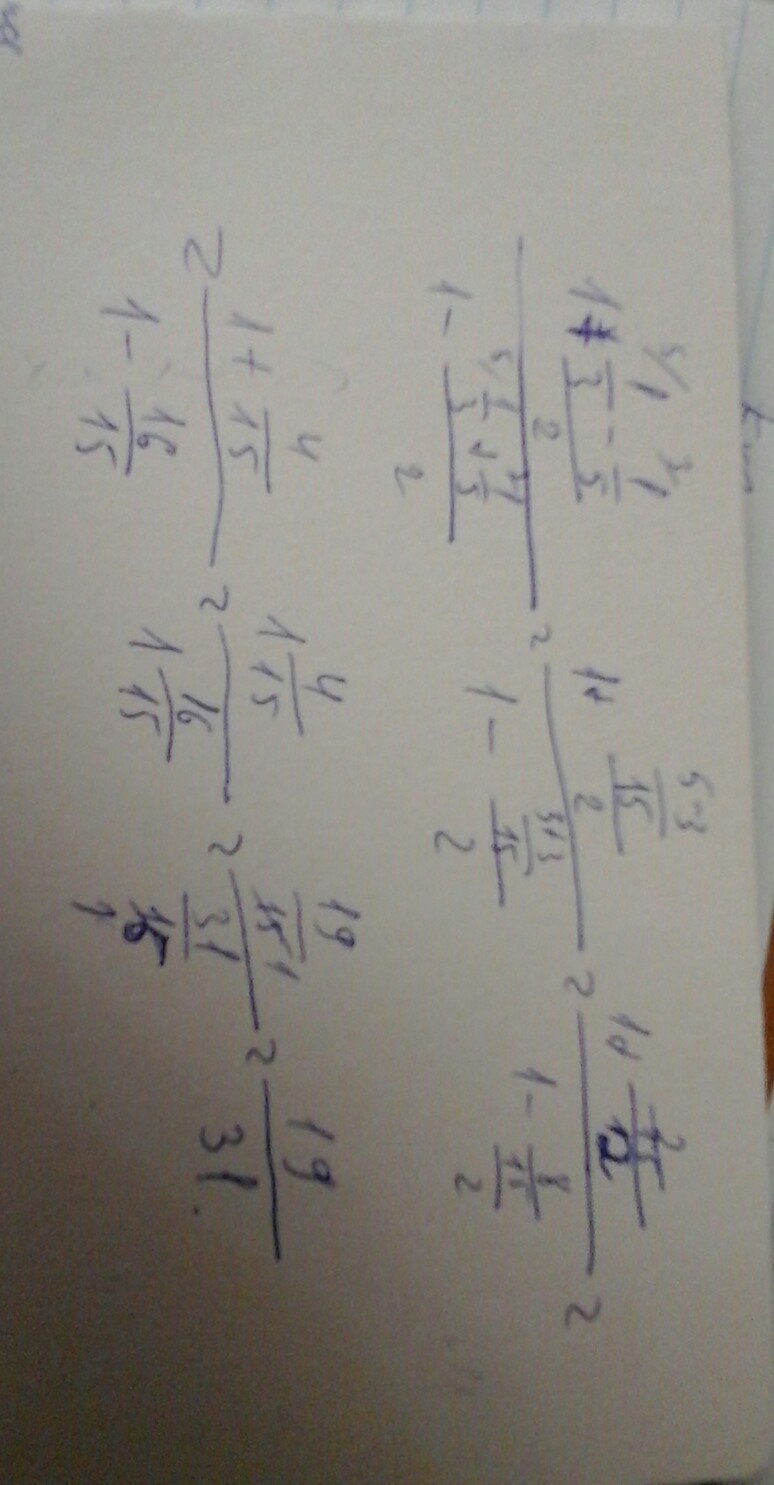 (1 + (1/3 - 1/5)/2) / (1 - (1/3 + 1/5)/2) = (1 + ((5-3)/15)/2) / (1 - ((5+3)/15)/2) = (1 + (2/15)/2) / (1 - (8/15)/2) =
= (1 + 4/15) / (1 - 16/15) = (1 4/15) / (1 16/15) = (19/15) / (31/15) = 19/31.